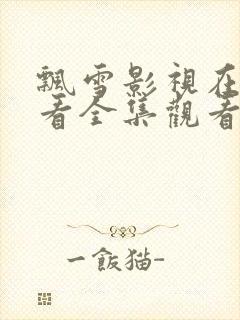 飄雪影視在
看全集觀看
一飯猫-